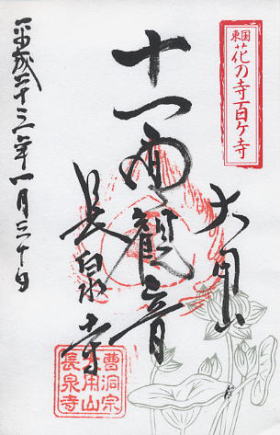 東国
花の寺百ケ寺
大用山
十一面観音
長泉寺
平成二十三年一月三十日
曹洞宗
大用山
長泉寺